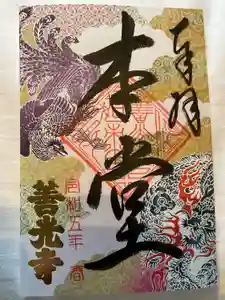 奉拝
本堂
令和五年 春
善光寺